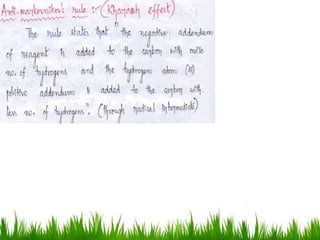 Anti-markovnikov's rule :- (Kharash effect)
The rule states that "the negative addendum
of reagent is added to the carbon with more
no. of hydrogens and the hydrogen atom (or)
positive addendum is added to the carbon with
less no. of hydrogens". (through radical intermediate)